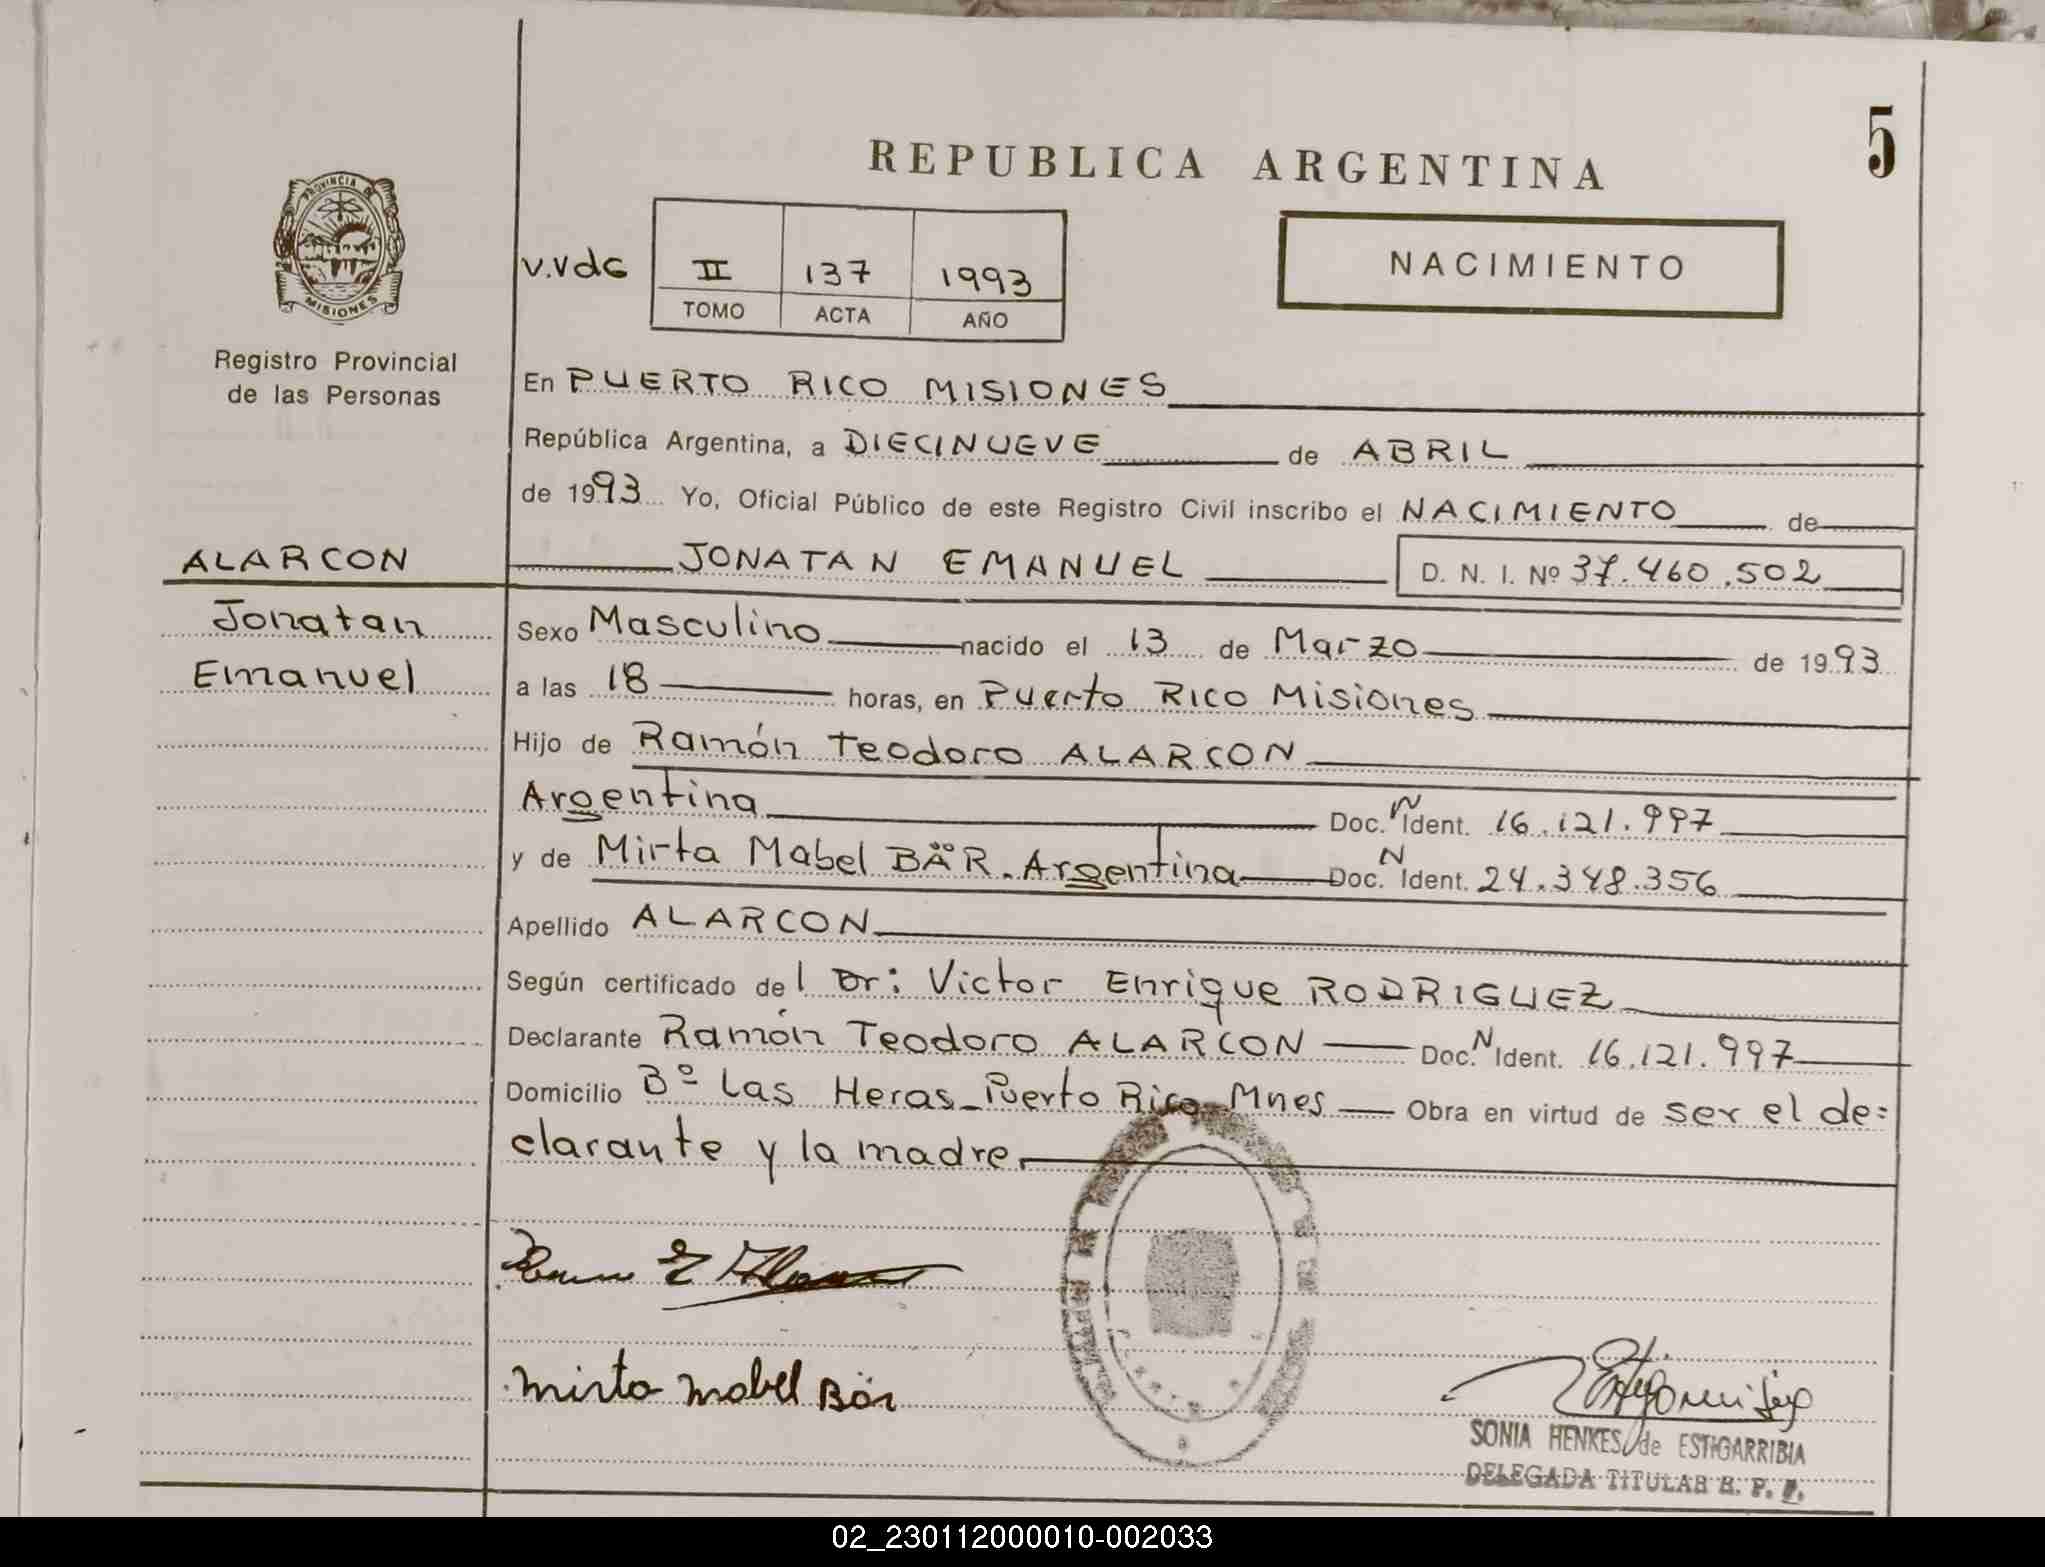 5
REPUBLICA ARGENTINA
PROVINCIA DE
MISIONES
Registro Provincial
de las Personas
V.Vdc
II 137 1993
TOMO ACTA AÑO
NACIMIENTO
En PUERTO RICO MISIONES
República Argentina, a DIECINUEVE de ABRIL
de 1993 Yo, Oficial Público de este Registro Civil inscribo el NACIMIENTO de
ALARCON
JONATAN EMANUEL D. N. I. Nº 37.460.502
Jonatan
Sexo Masculino nacido el 13 de Marzo de 1993
Emanuel
a las 18 horas, en Puerto Rico Misiones
Hijo de Ramón Teodoro ALARCON
Argentina Doc. N Ident. 16.121.997
y de Mirta Mabel BÄR. Argentina Doc. N Ident. 24.348.356
Apellido ALARCON
Según certificado del Dr: Victor Enrique RODRIGUEZ
Declarante Ramón Teodoro ALARCON Doc. N Ident. 16.121.997
Domicilio Bº Las Heras_Puerto Rico_Mnes Obra en virtud de ser el de=
clarante y la madre.
Mirta Mabel Bär
SONIA HENKES de ESTIGARRIBIA
DELEGADA TITULAR R. P. P.
02_230112000010-002033